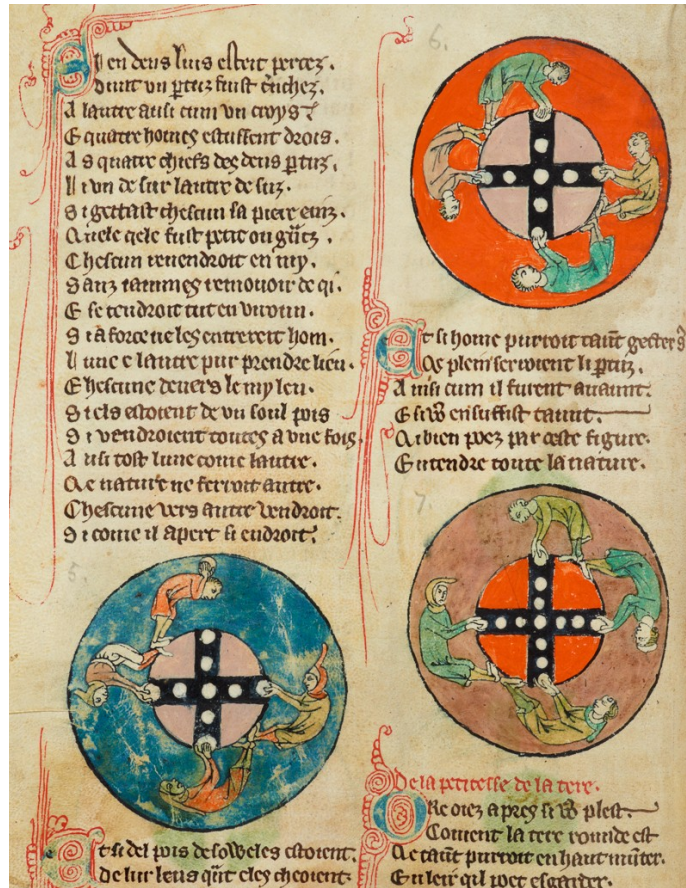 En deus luis esteit percez.
Dunt un ptuiz fust
A lautre ausi cum un croyz
E quatre homes estussent drois.
A s quatre chiefs des deus ptuiz.
Li un de sur lautre de suz.
S i gettast chescun sa piere einz.
Quele qele fust petit ou
Chescun revendroit en my.
S anz iammes remouoir de qi.
E se tendroit tut en viroun.
S i a force ne les entrereit hom.
L une e lautre pur prendre lieu.
Chescune devers le my leu.
S i els estoient de un soul pois
S i vendroient toutes a une fois
A usi tost lune come lautre.
Qe nature ne ferroit autre.
Chescune vers autre vendroit.
S i come il apert si endroit.
5.
Et si del pois de estoient.
de lur leus cles cheoient.
6.
Et si home purroit taunt getter
Qe plein serroient li ptuiz.
A insi cum il furent avaunt.
E si en suffist taunt.
Qi bien poez par ceste figure.
Entendre toute la nature.
7.
De la petitesse de la tere.
Ore oiez apres si vo plest.
Coment la tere rounde est
Qe taunt purroit en haut munter.
En leir qil poet esgarder.